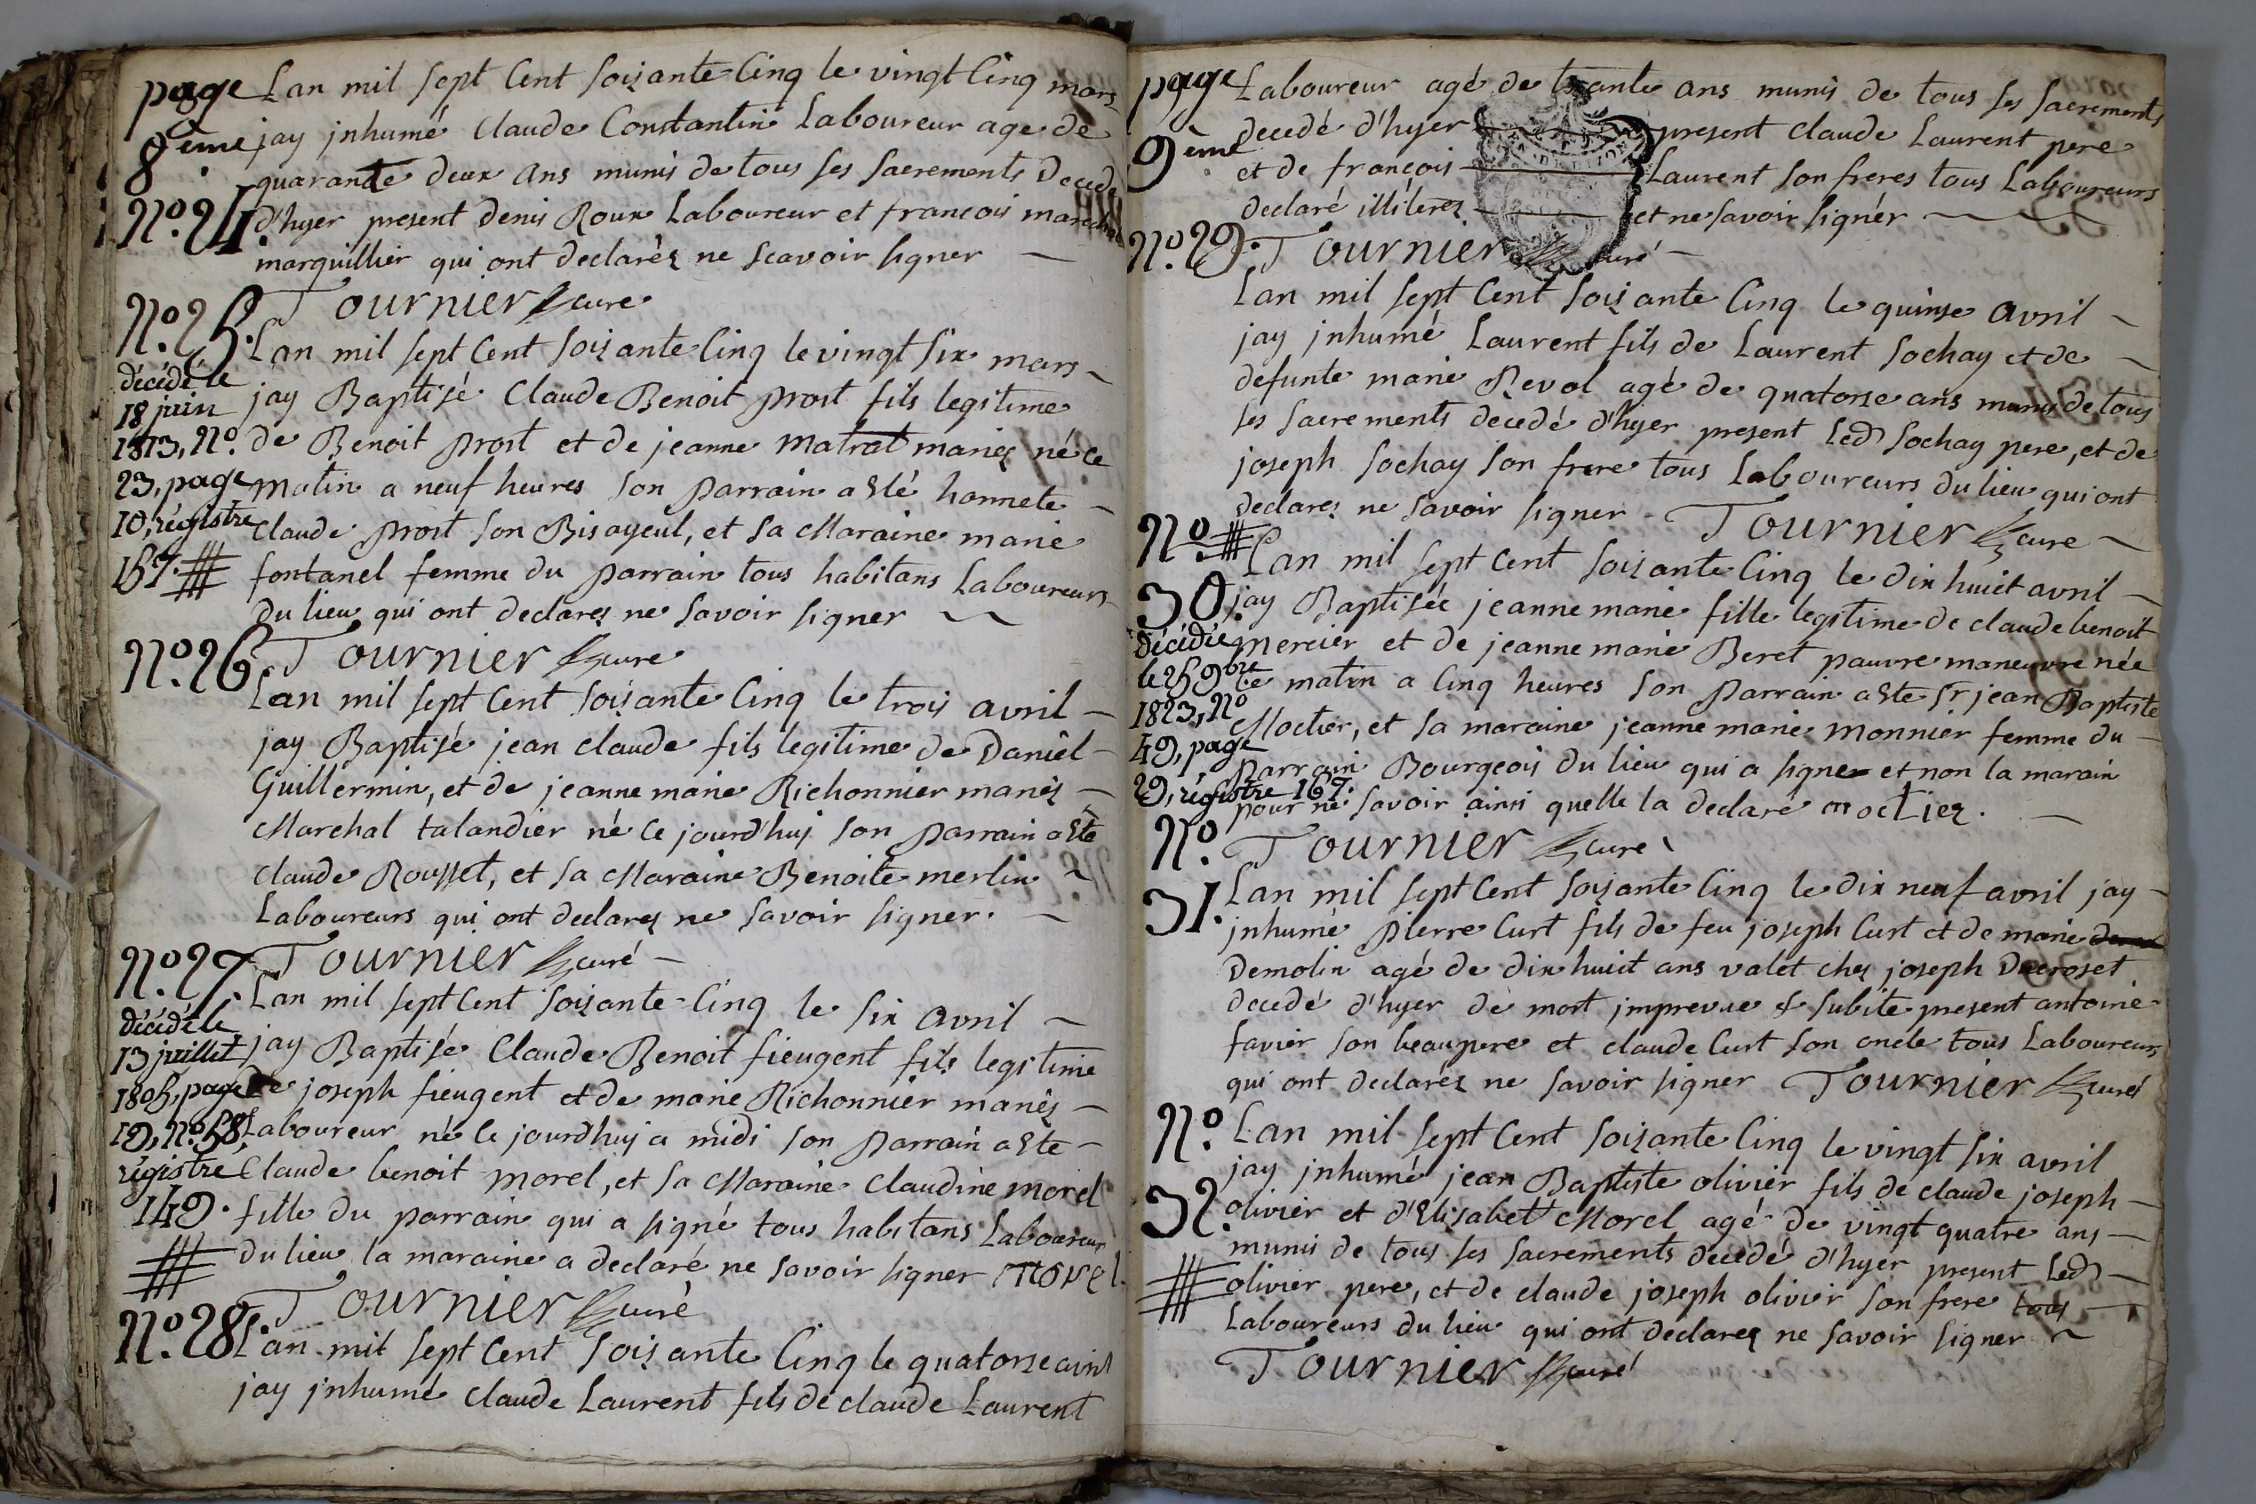 page
8ème.
Lan mil sept Cent soizante Cinq le vingt Cinq mars
jay jnhumé Claude Constantin Laboureur age de
quarante deux ans munis de tous ses sacrements Decedé
N.º 24.
d'hyer present denis Roux Laboureur et francois marechal
marquillier qui ont declaréz ne scavoir signer
Tournier curé
N.º 25.
Lan mil sept Cent soizante Cinq le vingt six mars
décédé le
18 juin
1813, Nº.
23, page
10, régistre
157.
jay Baptisé Claude Benoit prost fils legitime
de Benoit prost et de jeanne matrat mariez né ce
matin a neuf heures son parrain a été honnete
Claude prost son Bisayeul, et sa Maraine marie
fontanel femme du parrain tous habitans Laboureurs
du lieu qui ont declarez ne savoir signer
Tournier curé
N.º 26
Lan mil sept Cent soizante Cinq le trois avril
jay Baptisé jean claude fils legitime de Daniel
Guillermin, et de jeanne marie Richonnier mariés
Marchal talandier né ce jourd'huj son parrain a été
claude Rousset, et sa Maraine Benoite merlin
Laboureurs qui ont declarez ne savoir signer.
Tournier curé
N.º 27.
Lan mil sept Cent soizante Cinq le six avril
décédé le
13 juillet
1805, page
19, Nº. 58,
régistre
149.
jay Baptisé Claude Benoit fieugent fils legitime
de joseph fieugent et de marie Richonnier mariés
Laboureur né ce jourd'huj a midi son parrain a été
Claude benoit morel, et sa Maraine Claudine morel
fille du parrain qui a signé tous habitans Laboureurs
du lieu la maraine a declaré ne savoir signer morel.
Tournier curé
N.º 28.
Lan mil sept Cent soizante Cinq le quatorze avril
jay jnhumé Claude Laurent fils de claude Laurent
page
9ème.
Laboureur agé de ans munis de tous ses sacrements
decedé d'hyer present Claude Laurent pere
et de francois Laurent son freres tous Laboureurs
declaré illitérez et ne savoir signér
N.º 29.
Tournier curé
Lan mil sept Cent soizante Cinq le quinze avril
jay jnhumé Laurent fils de Laurent sochay et de
defunte marie Revol agé de quatorze ans munis de tous
ses sacrements decedé d'hyer present Led sochay pere, et de
joseph sochay son frere tous Laboureurs du lieu qui ont
declarez ne savoir signer Tournier curé
N.º
30.
Lan mil sept Cent soizante Cinq le dix huict avril
jay Baptisée jeanne marie fille legitime de claude benoit
décédée
le 25 9bre
1823, Nº
49, page
29, régistre 167.
mercier et de jeanne marie Beret pauvre maneuvre née
ce matin a Cinq heures son parrain a été sr jean Baptiste
Moctier, et sa maraine jeanne marie monnier femme du
parrain Bourgeois du lieu qui a signer et non la marain
pour ne savoir ainsi quelle la declaré moctier.
Tournier curé
N.º
31.
Lan mil sept Cent soizante Cinq le dix neuf avril jay
jnhumé pierre Curt fils de feu joseph Curt et de marie
Demolin agé de dix huict ans valet chez joseph Decroset
decedé d'hyer de mort jmprevue & subite present antoine
favier son beaupere et claude Curt son oncle tous Laboureurs
qui ont declaréz ne savoir signer Tournier curé
N.º
32.
Lan mil sept Cent soizante Cinq le vingt six avril
jay jnhumé jean Baptiste olivier fils de claude joseph
olivier et d'Elisabet Morel agé de vingt quatre ans
munis de tous ses sacrements decedé d'hyer present Led
olivier pere, et de claude joseph olivier son frere tous
Laboureurs du lieu qui ont declarez ne savoir signer
Tournier curé